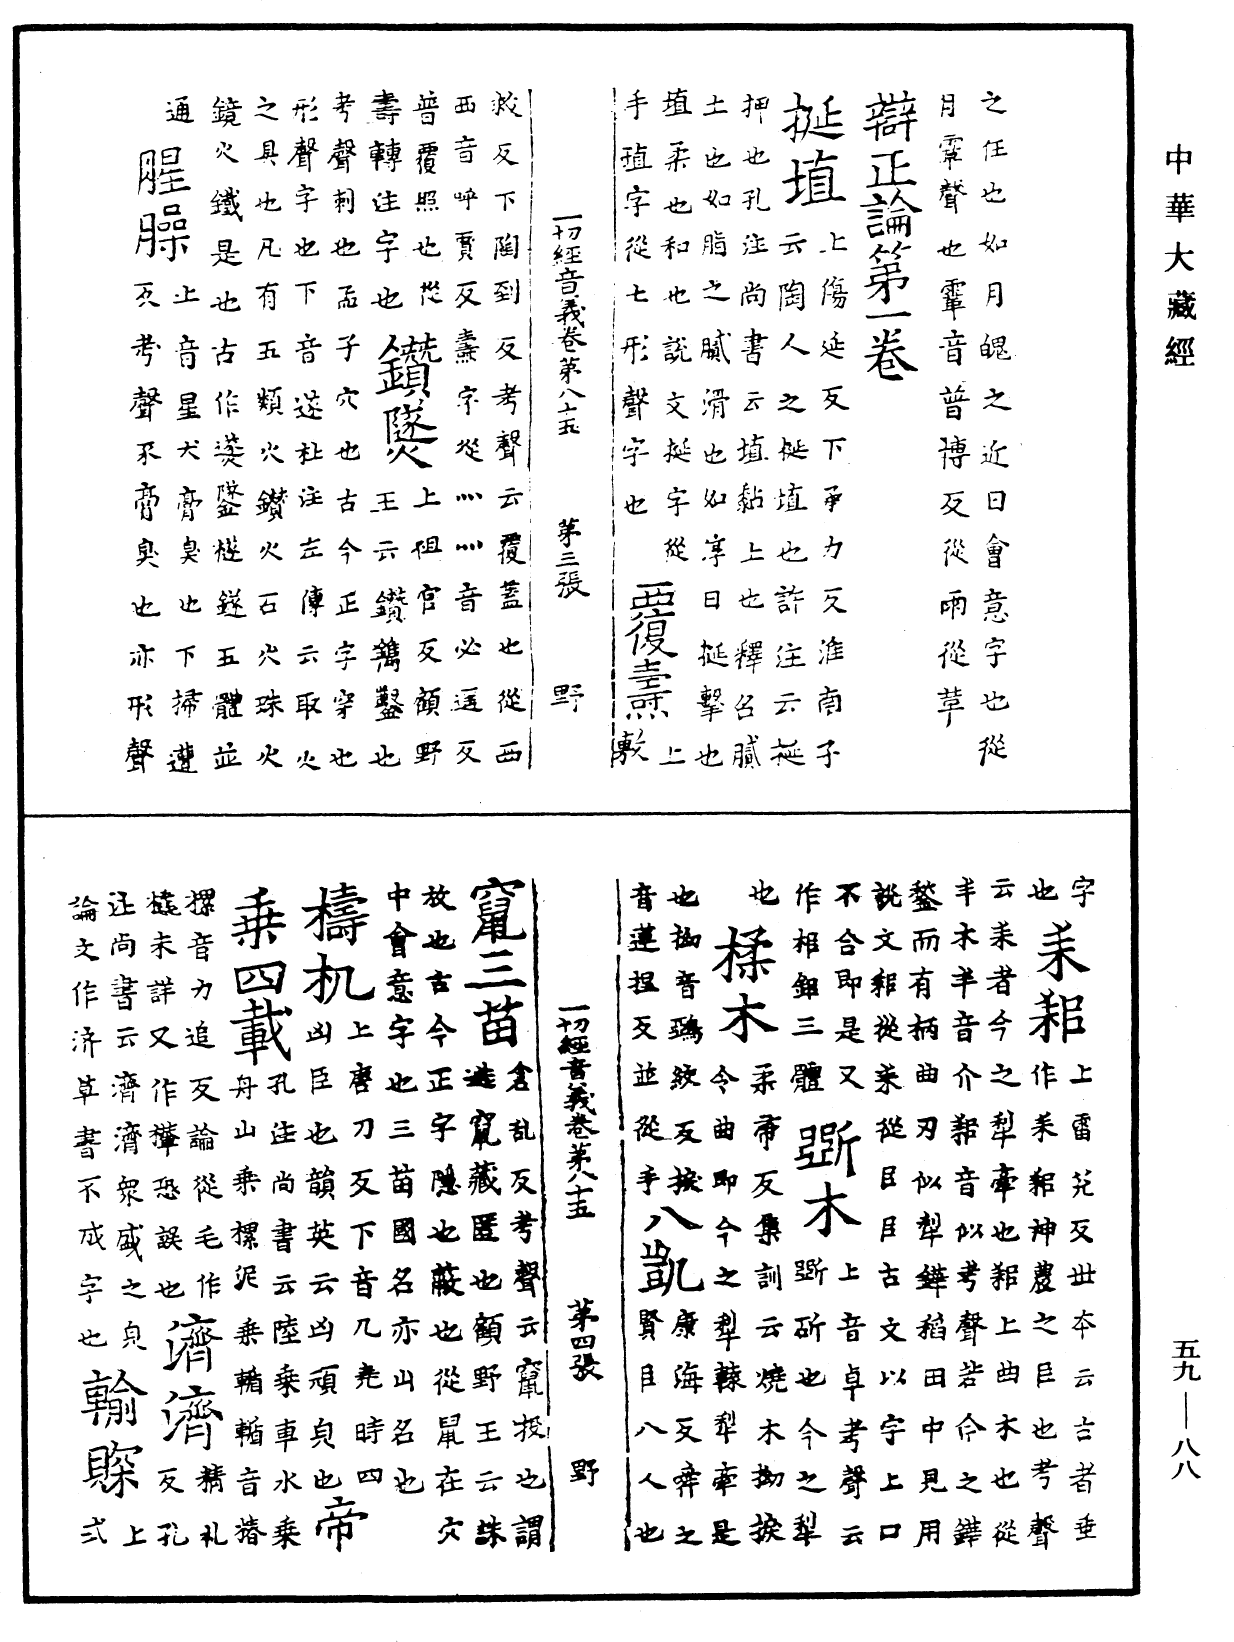 中華大藏經
之任也如月魄之近日會意字也從
月䨣聲也䨣音普博反從雨從革
辯正論第一卷
挻埴上傷延反下承力反淮南子
云陶人之挻埴也許注云挻
押也孔注尚書云埴黏土也釋名膩
土也如脂之膩滑也如淳曰挻擊也
埴柔也和也說文挻字從上
手埴字從土形聲字也
覆燾敷
一切經音義卷第八十五 第三張 野
救反下陶到反考聲云覆蓋也從西
西音呼賈反燾字從灬灬音必遙反
普覆照也從
壽轉注字也
鑽燧上祖官反顧野
王云鑽鐫鑿也
考聲刺也孟子穴也古今正字穿也
形聲字也下音遂杜注左傳云取火
之具也凡有五類火鑽火石火珠火
鏡火鐵是也古作䥙鐆檖鐩五體並
通
腥臊上音星犬膏臭也下掃遭
反考聲豕膏臭也亦形聲
字
也
耒耜上雷兌反世本云古者垂
作耒耜神農之臣也考聲
云耒者今之犁牽也耜上曲木也從
半木半音介耜音似考聲若今之鏵
鍫而有柄曲刃似犁鏵稻田中見用
說文耜從耒從㠯㠯古文以字上口
不合即是又
作梠鉏三體
斲木上音卓考聲云
斲斫也今之犁
也
揉木柔帚反集訓云燒木拗捩
令曲即今之犁轅犁牽是
也拗音鵶絞反捩
音蓮捏反並從手
八凱康海反舜之
賢臣八人也
一切經音義卷第八十五 第四張 野
竄三苗倉乱反考聲云竄投也謂
逃竄藏匿也顧野王云誅
放也古今正字隱也蔽也從鼠在穴
中會意字也三苗國名亦山名也
檮杌上唐刀反下音兀堯時四
凶臣也韻英云凶頑皃也
帝
乗四載孔注尚書云陸乗車水乗
舟山乗樏泥乗輴輴音椿
樏音力追反論從毛作
橇未詳又作攆恐誤也
濟濟精礼
反孔
注尚書云濟濟衆盛之皃
論文作済草書不成字也
輸賝上
式
五九—八八